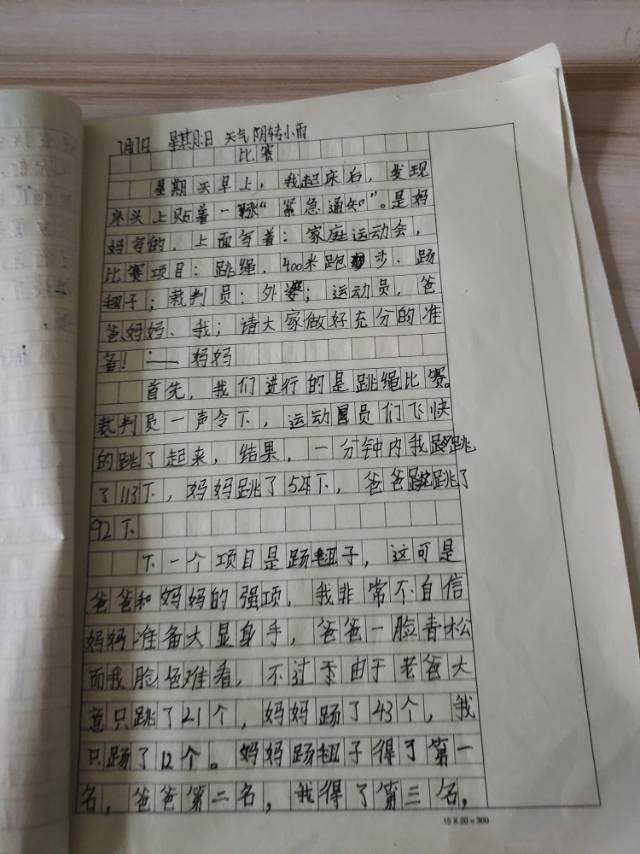 7月7日 星期日 天气阴转小雨
比赛
星期天早上，我起床后，发现
床头上贴着一张“紧急通知”。是妈
妈写的，上面写着：家庭运动会，
比赛项目：跳绳，400米跑步、踢
毽子；裁判员：外婆；运动员，爸
爸妈妈、我；请大家做好充分的准
备！——妈妈
首先，我们进行的是跳绳比赛。
裁判员一声令下，运动员们飞快
的跳了起来，结果，一分钟内我跳
了113下，妈妈跳了54下，爸爸跳了
92下
下一个项目是踢毽子，这可是
爸爸和妈妈的强项，我非常不自信
妈妈准备大显身手，爸爸一脸轻松
而我脸色难看，不过由于老爸大
意只跳了21个，妈妈踢了43个，我
只踢了12个。妈妈踢毽子得了第一
名，爸爸第二名，我得了第三名，
15×20=300